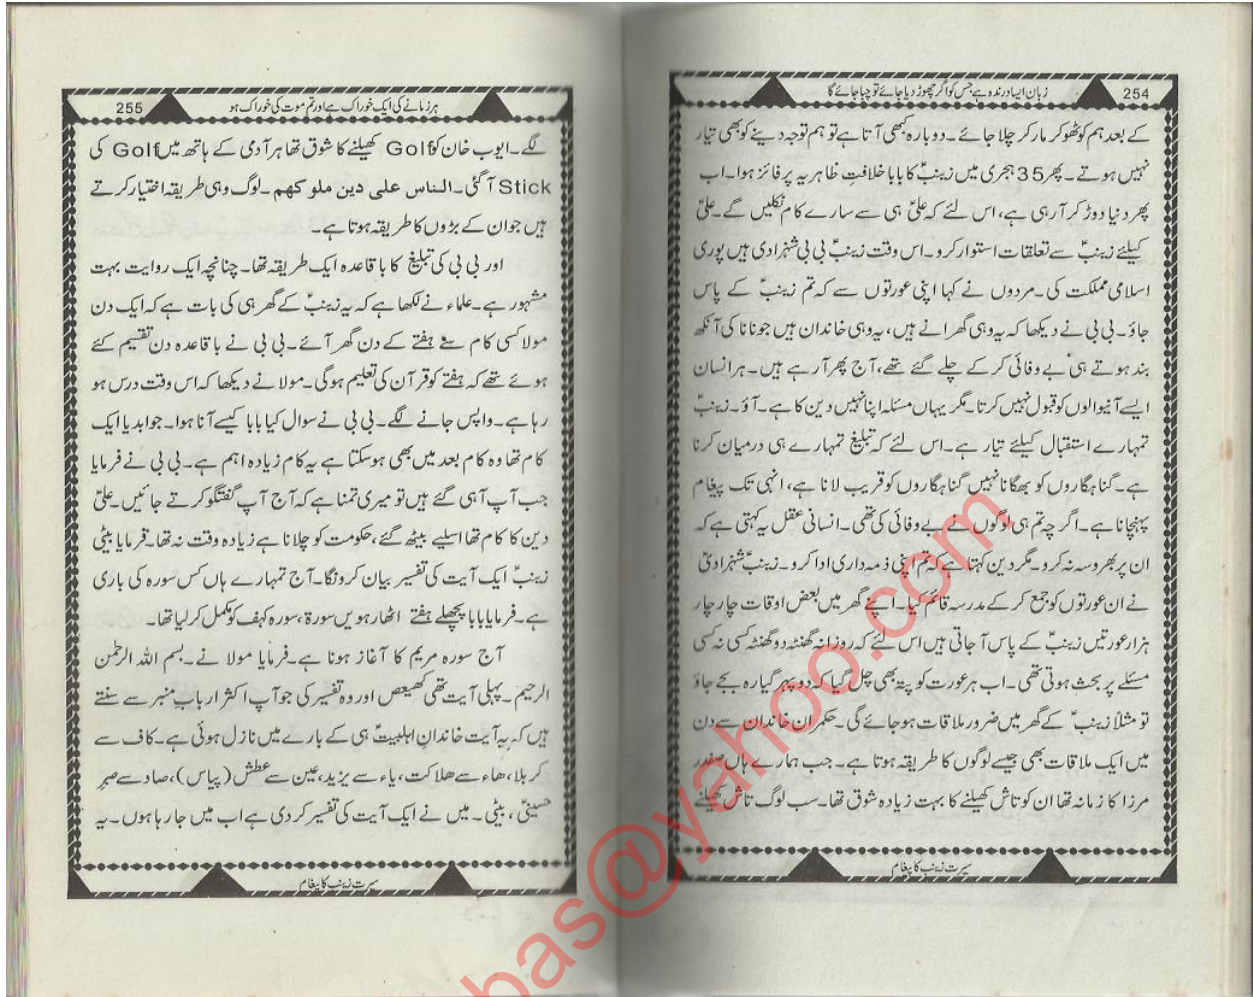 254
زبان ایسا درندہ ہے جس کو اگر چھوڑ دیا جائے تو چبا جائے گا
کے بعد ہم کو ٹھوکر مار کر چلا جائے۔ دوبارہ کبھی آتا ہے تو ہم توجہ دینے کو بھی تیار
نہیں ہوتے۔ پھر 35 ہجری میں زینبؑ کا بابا خلافتِ ظاہریہ پر فائز ہوا۔ اب
پھر دنیا دوڑ کر آرہی ہے، اس لئے کہ علیؑ ہی سے سارے کام نکلیں گے۔ علیؑ
کیلئے زینبؑ سے تعلقات استوار کرو۔ اس وقت زینبؑ بی بی شہزادی ہیں پوری
اسلامی مملکت کی۔ مردوں نے کہا اپنی عورتوں سے کہ تم زینبؑ کے پاس
جاؤ۔ بی بی نے دیکھا کہ یہ وہی گھرانے ہیں، یہ وہی خاندان ہیں جو نانا کی آنکھ
بند ہوتے ہی بے وفائی کر کے چلے گئے تھے، آج پھر آرہے ہیں۔ ہر انسان
ایسے آنیوالوں کو قبول نہیں کرتا۔ مگر یہاں مسئلہ اپنا نہیں دین کا ہے۔ آؤ۔ زینبؑ
تمہارے استقبال کیلئے تیار ہے۔ اس لئے کہ تبلیغ تمہارے ہی درمیان کرنا
ہے۔ گناہگاروں کو بھگانا نہیں گناہگاروں کو قریب لانا ہے، انہی تک پیغام
پہنچانا ہے۔ اگرچہ تم ہی لوگوں نے بے وفائی کی تھی۔ انسانی عقل یہ کہتی ہے کہ
ان پر بھروسہ نہ کرو۔ مگر دین کہتا ہے کہ تم اپنی ذمہ داری ادا کرو۔ زینبؑ شہزادیؑ
نے ان عورتوں کو جمع کر کے مدرسہ قائم کیا۔ اپنے گھر میں بعض اوقات چار چار
ہزار عورتیں زینبؑ کے پاس آجاتی ہیں اس لئے کہ روزانہ گھنٹہ دو گھنٹہ کسی نہ کسی
مسئلے پر بحث ہوتی تھی۔ اب ہر عورت کو پتہ بھی چل گیا کہ دوپہر گیارہ بجے جاؤ
تو مثلاً زینبؑ کے گھر میں ضرور ملاقات ہوجائے گی۔ حکمران خاندان سے دن
میں ایک ملاقات بھی جیسے لوگوں کا طریقہ ہوتا ہے۔ جب ہمارے ہاں صفدر
مرزا کا زمانہ تھا ان کو تاش کھیلنے کا بہت زیادہ شوق تھا۔ سب لوگ تاش کھیلنے
سیرت زینب کا پیغام
255
ہر زمانے کی ایک خوراک ہے اور تم موت کی خوراک ہو
لگے۔ ایوب خان کو Golf کھیلنے کا شوق تھا ہر آدمی کے ہاتھ میں Golf کی
Stick آگئی۔ الناس علی دین ملوکھم۔ لوگ وہی طریقہ اختیار کرتے
ہیں جو ان کے بڑوں کا طریقہ ہوتا ہے۔
اور بی بی کی تبلیغ کا باقاعدہ ایک طریقہ تھا۔ چنانچہ ایک روایت بہت
مشہور ہے۔ علماء نے لکھا ہے کہ یہ زینبؑ کے گھر ہی کی بات ہے کہ ایک دن
مولا کسی کام سے ہفتے کے دن گھر آئے۔ بی بی نے باقاعدہ دن تقسیم کئے
ہوئے تھے کہ ہفتے کو قرآن کی تعلیم ہوگی۔ مولا نے دیکھا کہ اس وقت درس ہو
رہا ہے۔ واپس جانے لگے۔ بی بی نے سوال کیا بابا کیسے آنا ہوا۔ جواب دیا ایک
کام تھا وہ کام بعد میں بھی ہو سکتا ہے یہ کام زیادہ اہم ہے۔ بی بی نے فرمایا
جب آپ آہی گئے ہیں تو میری تمنا ہے کہ آج آپ گفتگو کرتے جائیں۔ علیؑ
دین کا کام تھا اسلیے بیٹھ گئے، حکومت کو چلانا ہے زیادہ وقت نہ تھا۔ فرمایا بیٹی
زینبؑ ایک آیت کی تفسیر بیان کرونگا۔ آج تمہارے ہاں کس سورہ کی باری
ہے۔ فرمایا بابا پچھلے ہفتے اٹھارہویں سورۃ، سورہ کہف کو مکمل کر لیا تھا۔
آج سورہ مریم کا آغاز ہونا ہے۔ فرمایا مولا نے۔ بسم اللہ الرحمٰن
الرحیم۔ پہلی آیت تھی کھیعص اور وہ تفسیر کی جو آپ اکثر ارباب منبر سے سنتے
ہیں کہ یہ آیت خاندانِ اہلبیتؑ ہی کے بارے میں نازل ہوئی ہے۔ کاف سے
کربلا، ھاء سے ھلاکت، یاء سے یزید، عین سے عطش (پیاس)، صاد سے صبر
حسینیؑ، بیٹی۔ میں نے ایک آیت کی تفسیر کر دی ہے اب میں جا رہا ہوں۔ یہ
سیرت زینب کا پیغام
bas@yahoo.com